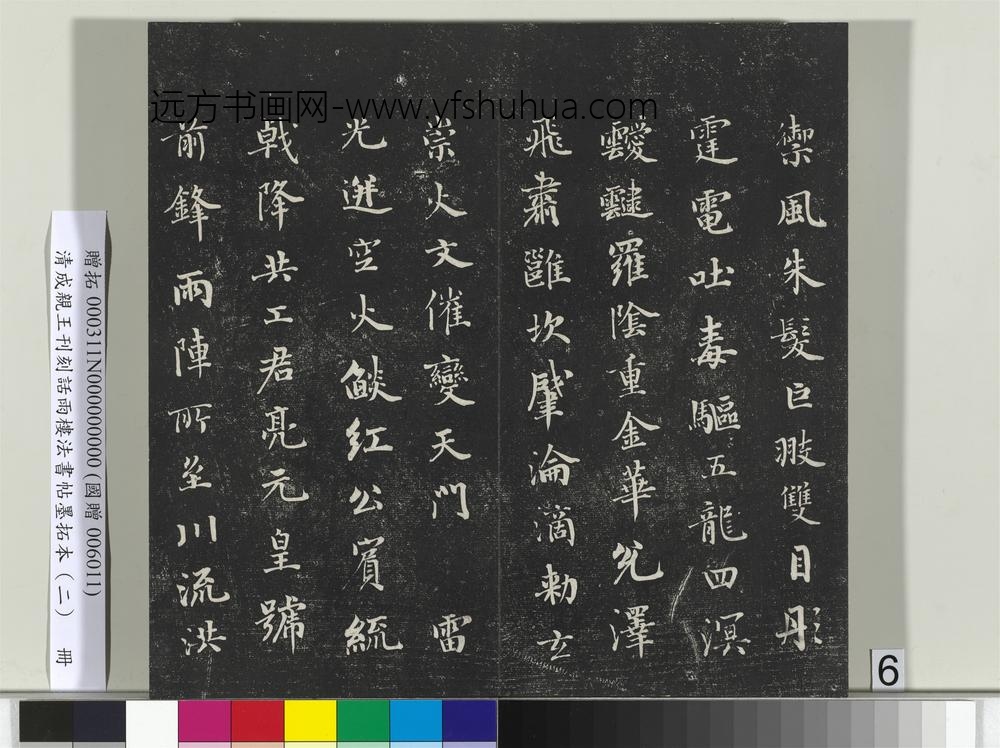 禦風朱髮巨翅雙目彤
霆電吐毒驅五龍四溟
靉靆羅陰重金華兌澤
飛肅雝坎肇淪滴勅
崇火文催變天門 雷
光迸空火燄紅公賓統
戟降共工君亮元皇號
前鋒雨陣所至川流洪
远方书画网-www.yfshuhua.com
贈拓 000311N000000000 (國贈 006011)
清成親王刊刻話雨樓法書帖墨拓本（二） 冊
6